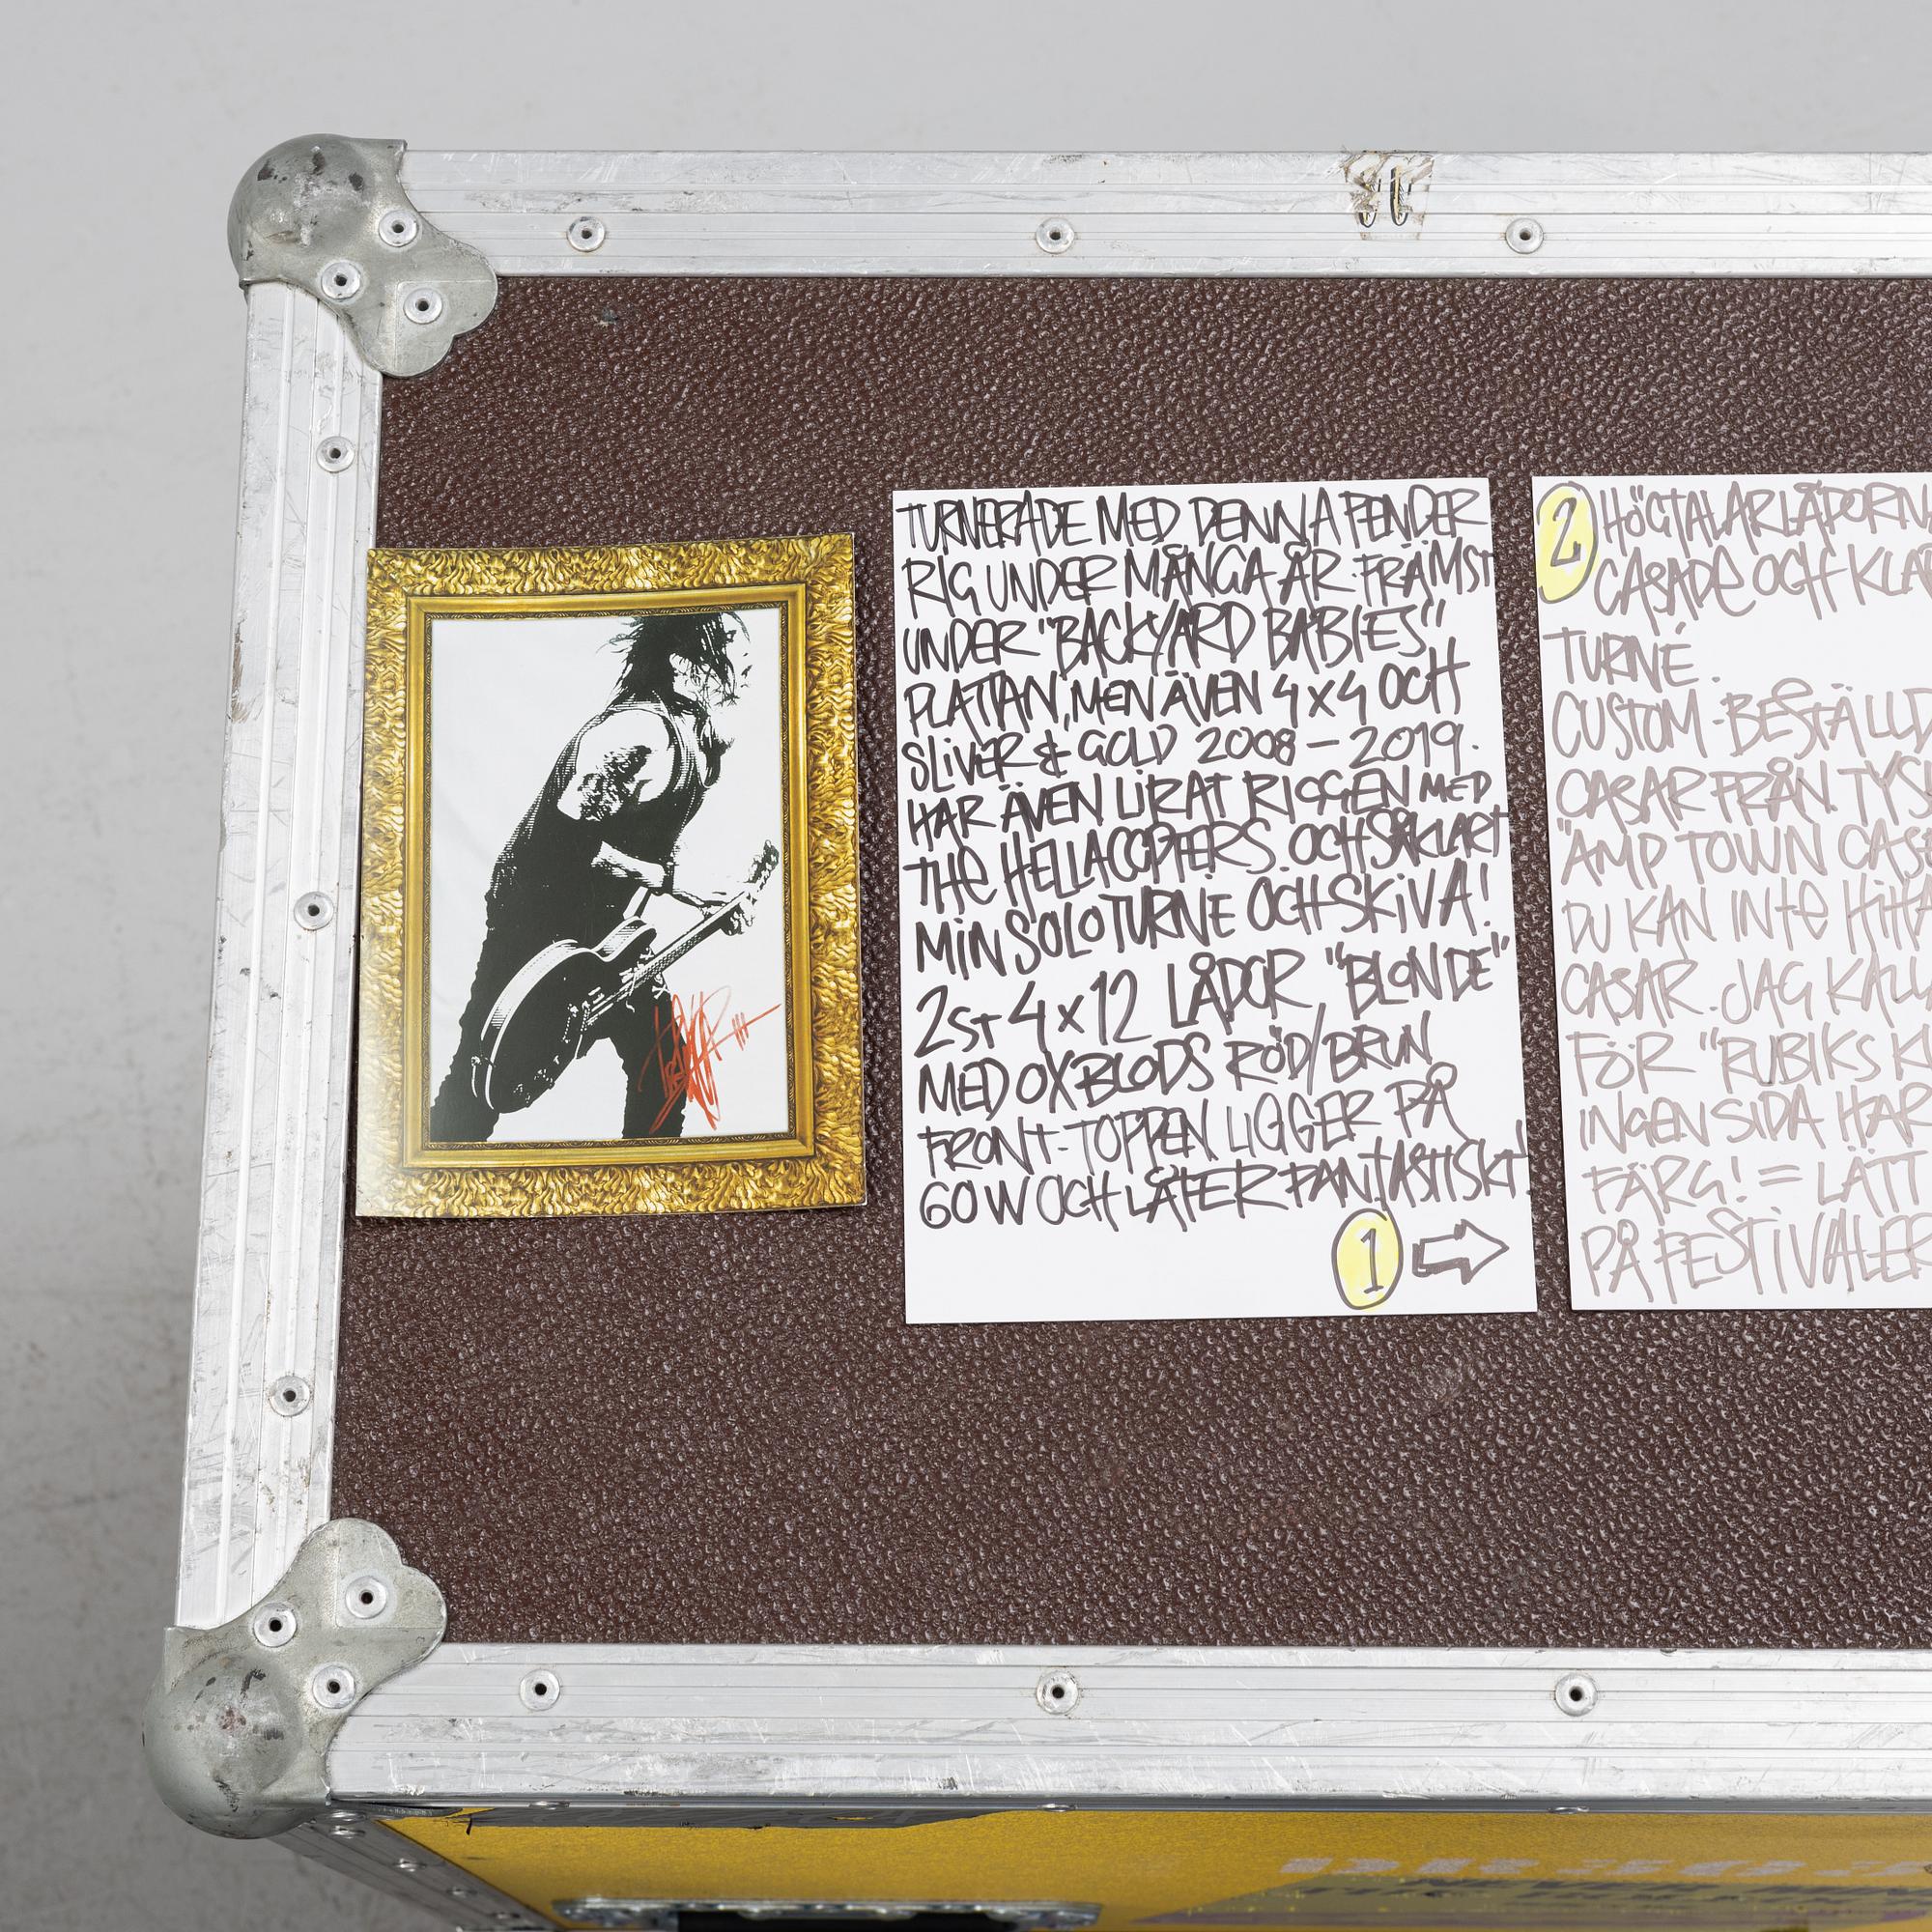 TURNERADE MED DENNA FENDER
RIG UNDER MÅNGA ÅR. FRÄMST
UNDER "BACKYARD BABIES"
PLATTAN, MEN ÄVEN 4x4 OCH
SLIVER & GOLD 2008 – 2019.
HAR ÄVEN LIRAT RIGGEN MED
THE HELLACOPTERS. OCH SÅKLART
MIN SOLOTURNE OCH SKIVA!
2ST 4x12 LÅDOR, "BLONDE"
MED OXBLODS RÖD/BRUN
FRONT. TOPPEN LIGGER PÅ
60W OCH LÅTER FANTASTISKT!
1
2 HÖGTALARLÅDORN
CASADE OCH KLA
TURNÉ.
CUSTOM-BESTÄLLD
CASAR FRÅN TYS
"AMP TOWN CASE
DU KAN INTE HITTA
CASAR. JAG KALL
FÖR "RUBIKS K
INGEN SIDA HAR
FÄRG! = LÄTT
PÅ FESTIVALER